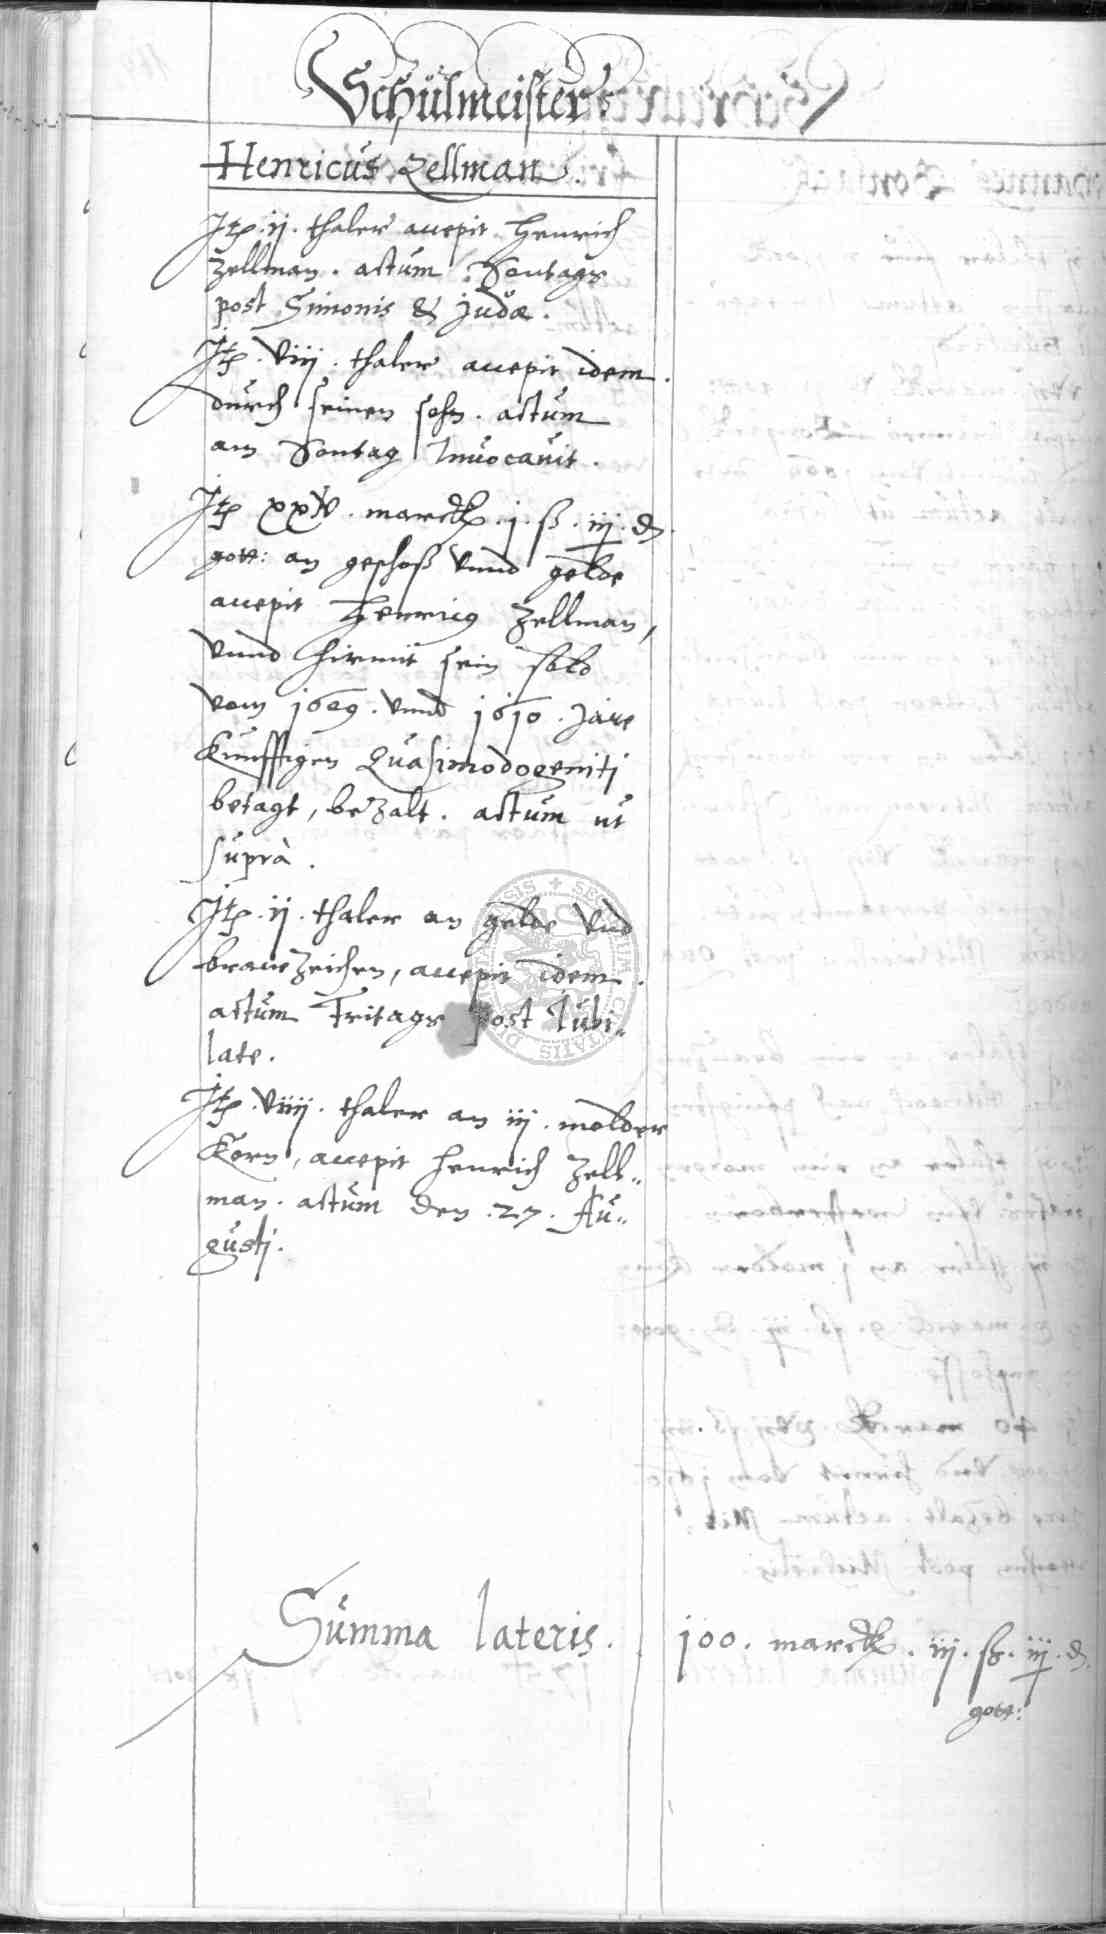 Schulmeister
Henricus Zellman.
Jtem .ij. thaler accepit Henrich
Zellman. actum Sontags
post Simonis & Judæ.
Jtem .viij. thaler accepit idem.
durch seinen sohn. actum
am Sontag Invocavit.
Jtem xxiv. marck .j. ß. iij. d.
gott: an geschoß vnnd gelde
accepit Henricus Zellman,
vnnd hirmit sein sold
vom 1609. vnnd 1610. Jare
Kunfftigen Quasimodogeniti
betagt, bezalt. actum ut
suprà.
Jtem .ij. thaler an gelde vnd
brauezeichen, accepit idem.
actum Fritags post Jubi„
late.
Jtem .viiij. thaler an iij. molder
Korn, accepit Henrich Zell„
man. actum den .27. Au„
gusti.
Summa lateris. 100. marck. iij. ß. iij. d.
gott: